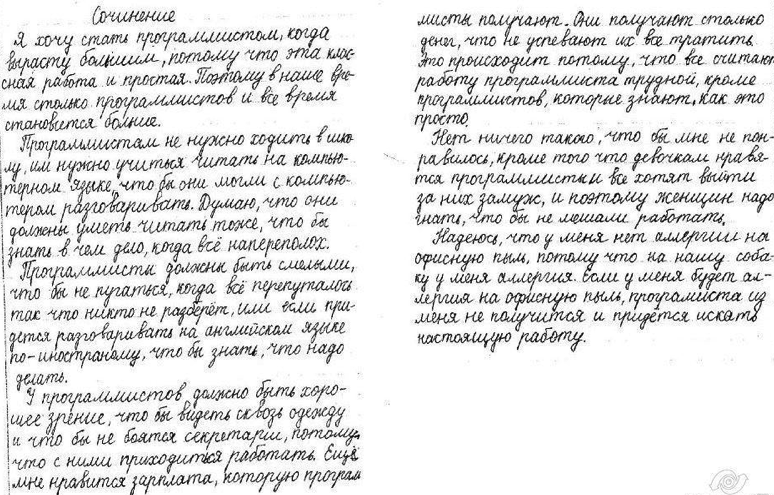 Сочинение
Я хочу стать программистом, когда
вырасту большим, потому что эта клас-
сная работа и простая. Поэтому в наше вре-
мя столько программистов и все время
становится больше.
Программистам не нужно ходить в шко-
лу, им нужно учиться читать на компью-
терном языке, что бы они могли с компью-
тером разговаривать. Думаю, что они
должны уметь читать тоже, что бы
знать в чем дело, когда всё наперополох.
Программисты должны быть смелыми,
что бы не пугаться, когда всё перепуталось
так что никто не разберёт, или если при-
дется разговаривать на английском языке
по-иностраному, что бы знать, что надо
делать.
У программистов должно быть хоро-
шее зрение, что бы видеть сквозь одежду
и что бы не боятся секретарш, потому
что с ними приходиться работать. Ещё
мне нравится зарплата, которую програм
мисты получают. Они получают столько
денег, что не успевают их все тратить.
Это происходит потому, что все считают
работу программиста трудной, кроме
программистов, которые знают, как это
просто.
Нет ничего такого, что бы мне не пон-
равилось, кроме того что девочкам нравя-
тся программисты и все хотят выйти
за них замуж, и поэтому женщин надо
гнать, что бы не мешали работать.
Надеюсь, что у меня нет аллергии на
офисную пыль, потому что на нашу соба-
ку у меня аллергия. Если у меня будет ал-
лергия на офисную пыль, програмиста из
меня не получится и придётся искать
настоящую работу.